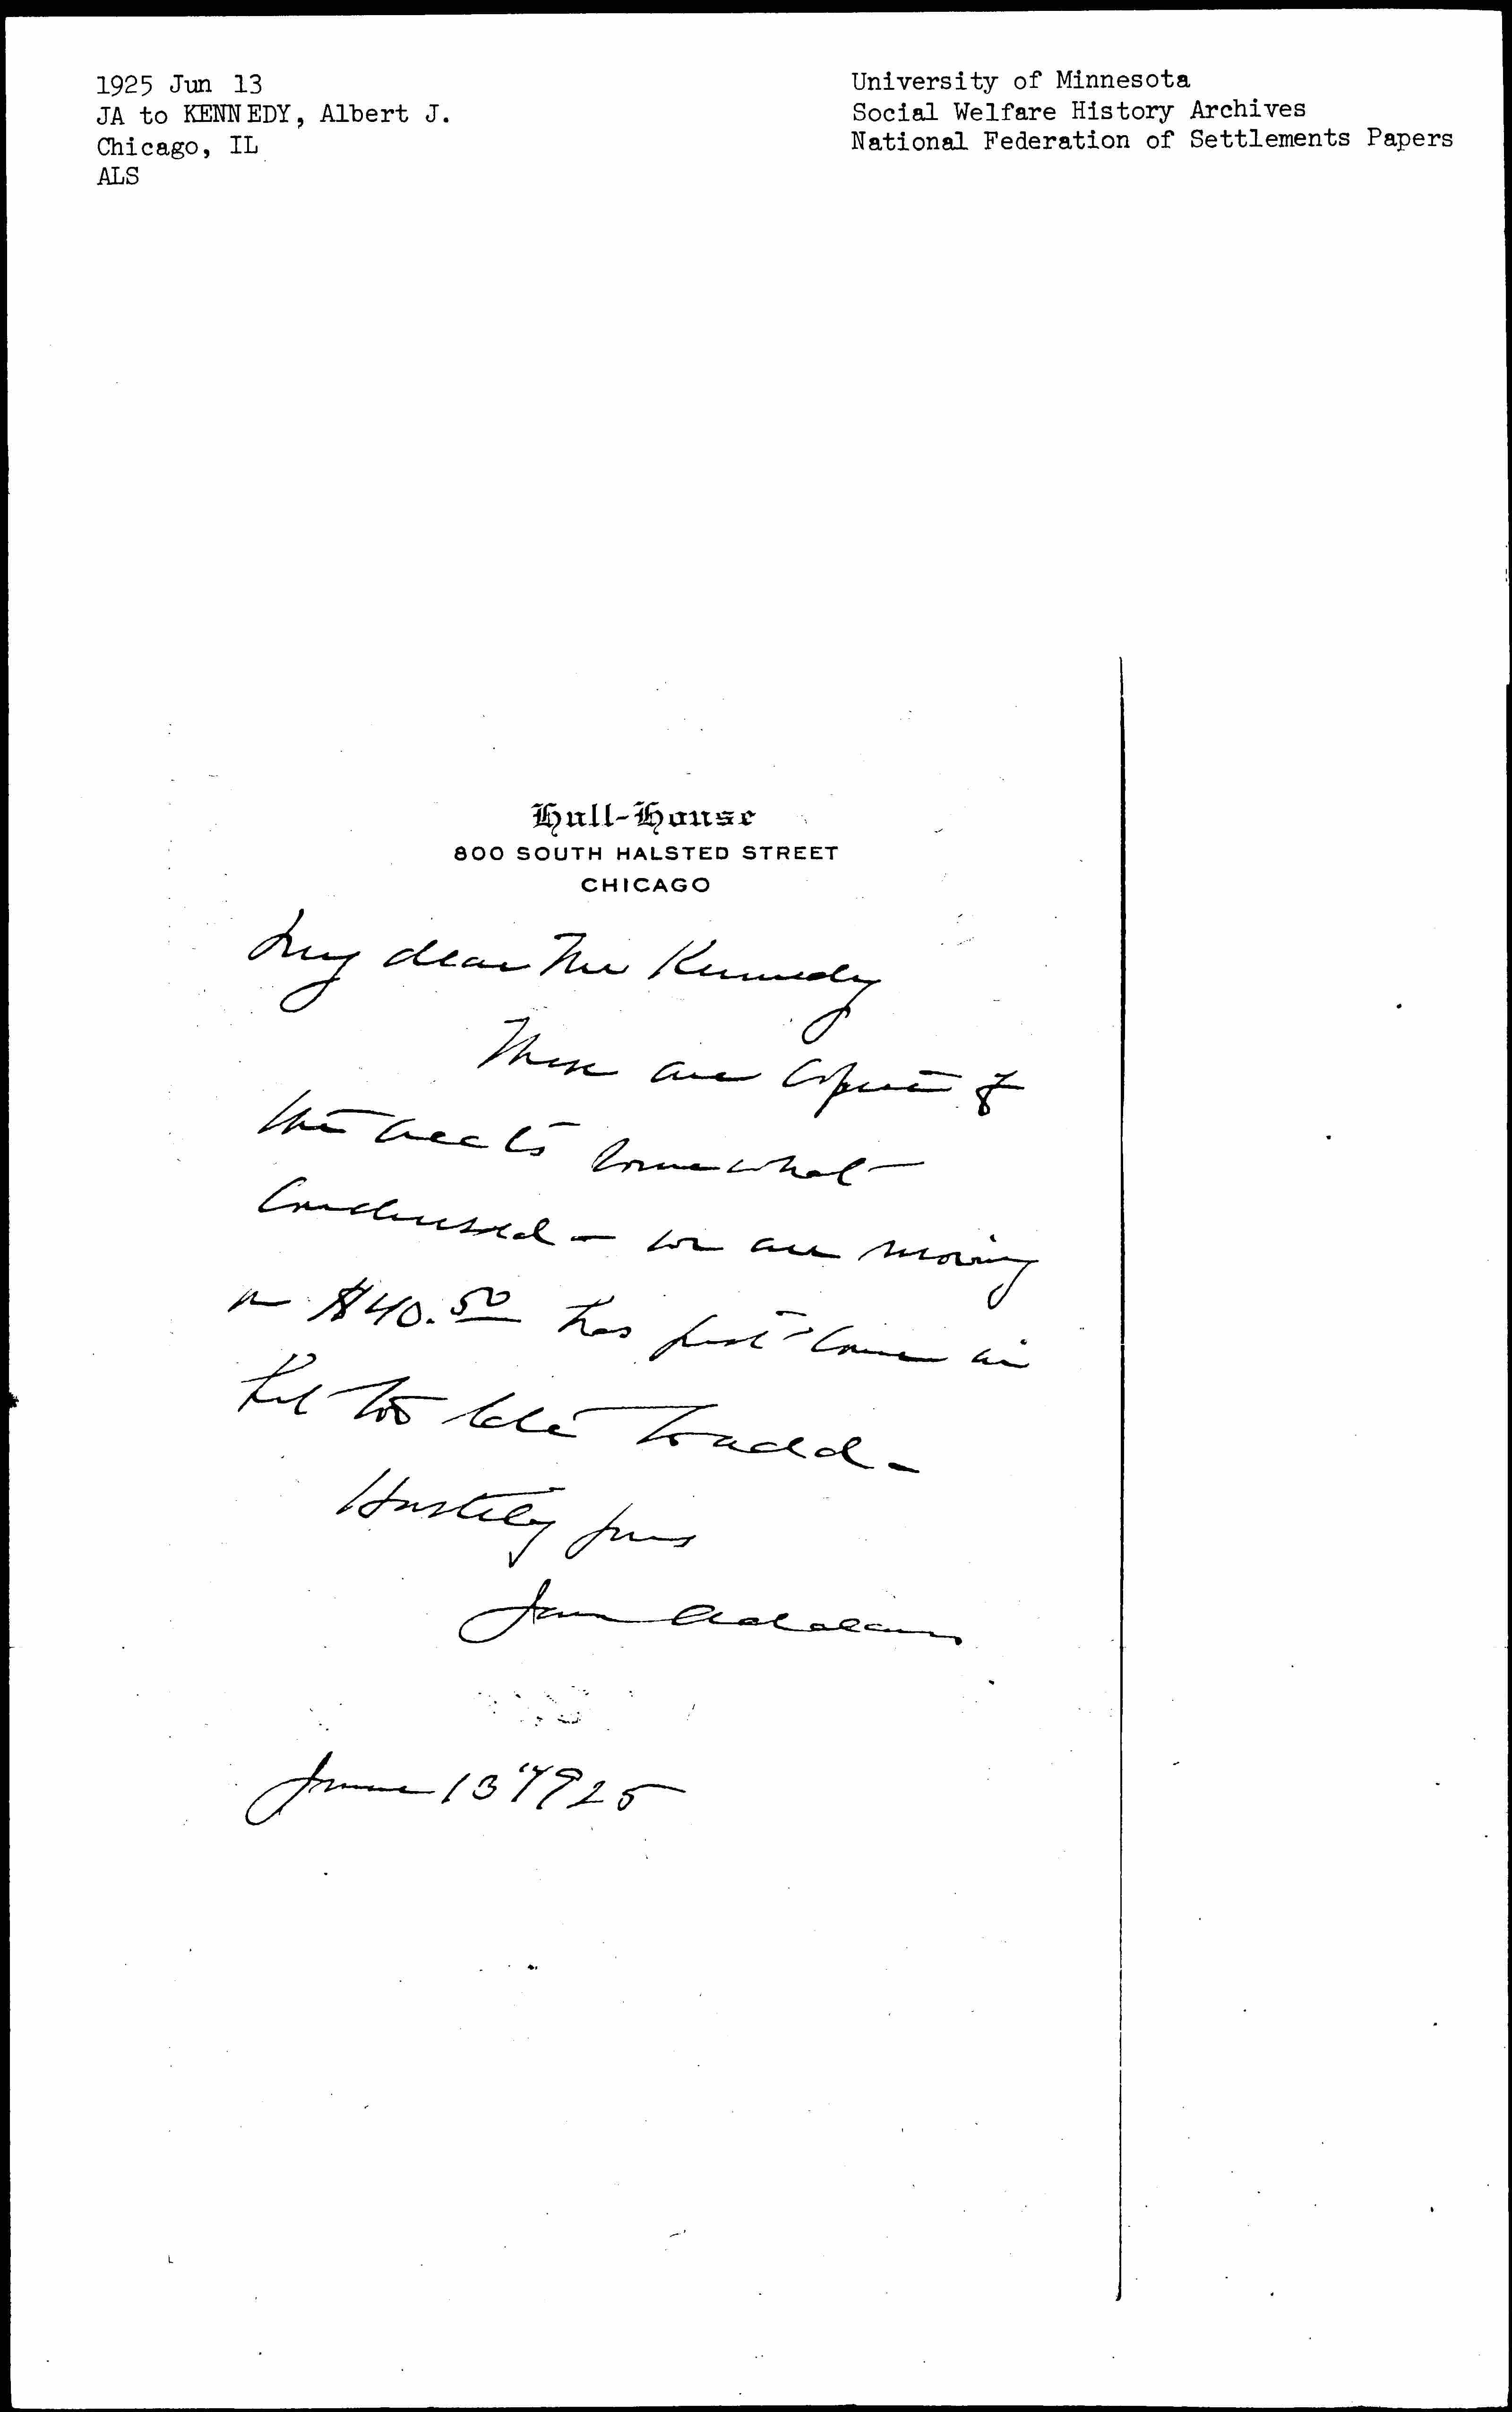 1925 Jun 13
JA to KENNEDY, Albert J.
Chicago, IL
ALS
University of Minnesota
Social Welfare History Archives
National Federation of Settlements Papers
Hull-House
800 SOUTH HALSTED STREET
CHICAGO
My dear Mr Kennedy
These are copies of
the accts somewhat
condensed - we are moving
on $40.50 has just come in
but too late to add -
Hastily yours
Jane Addams
June 13" 1925